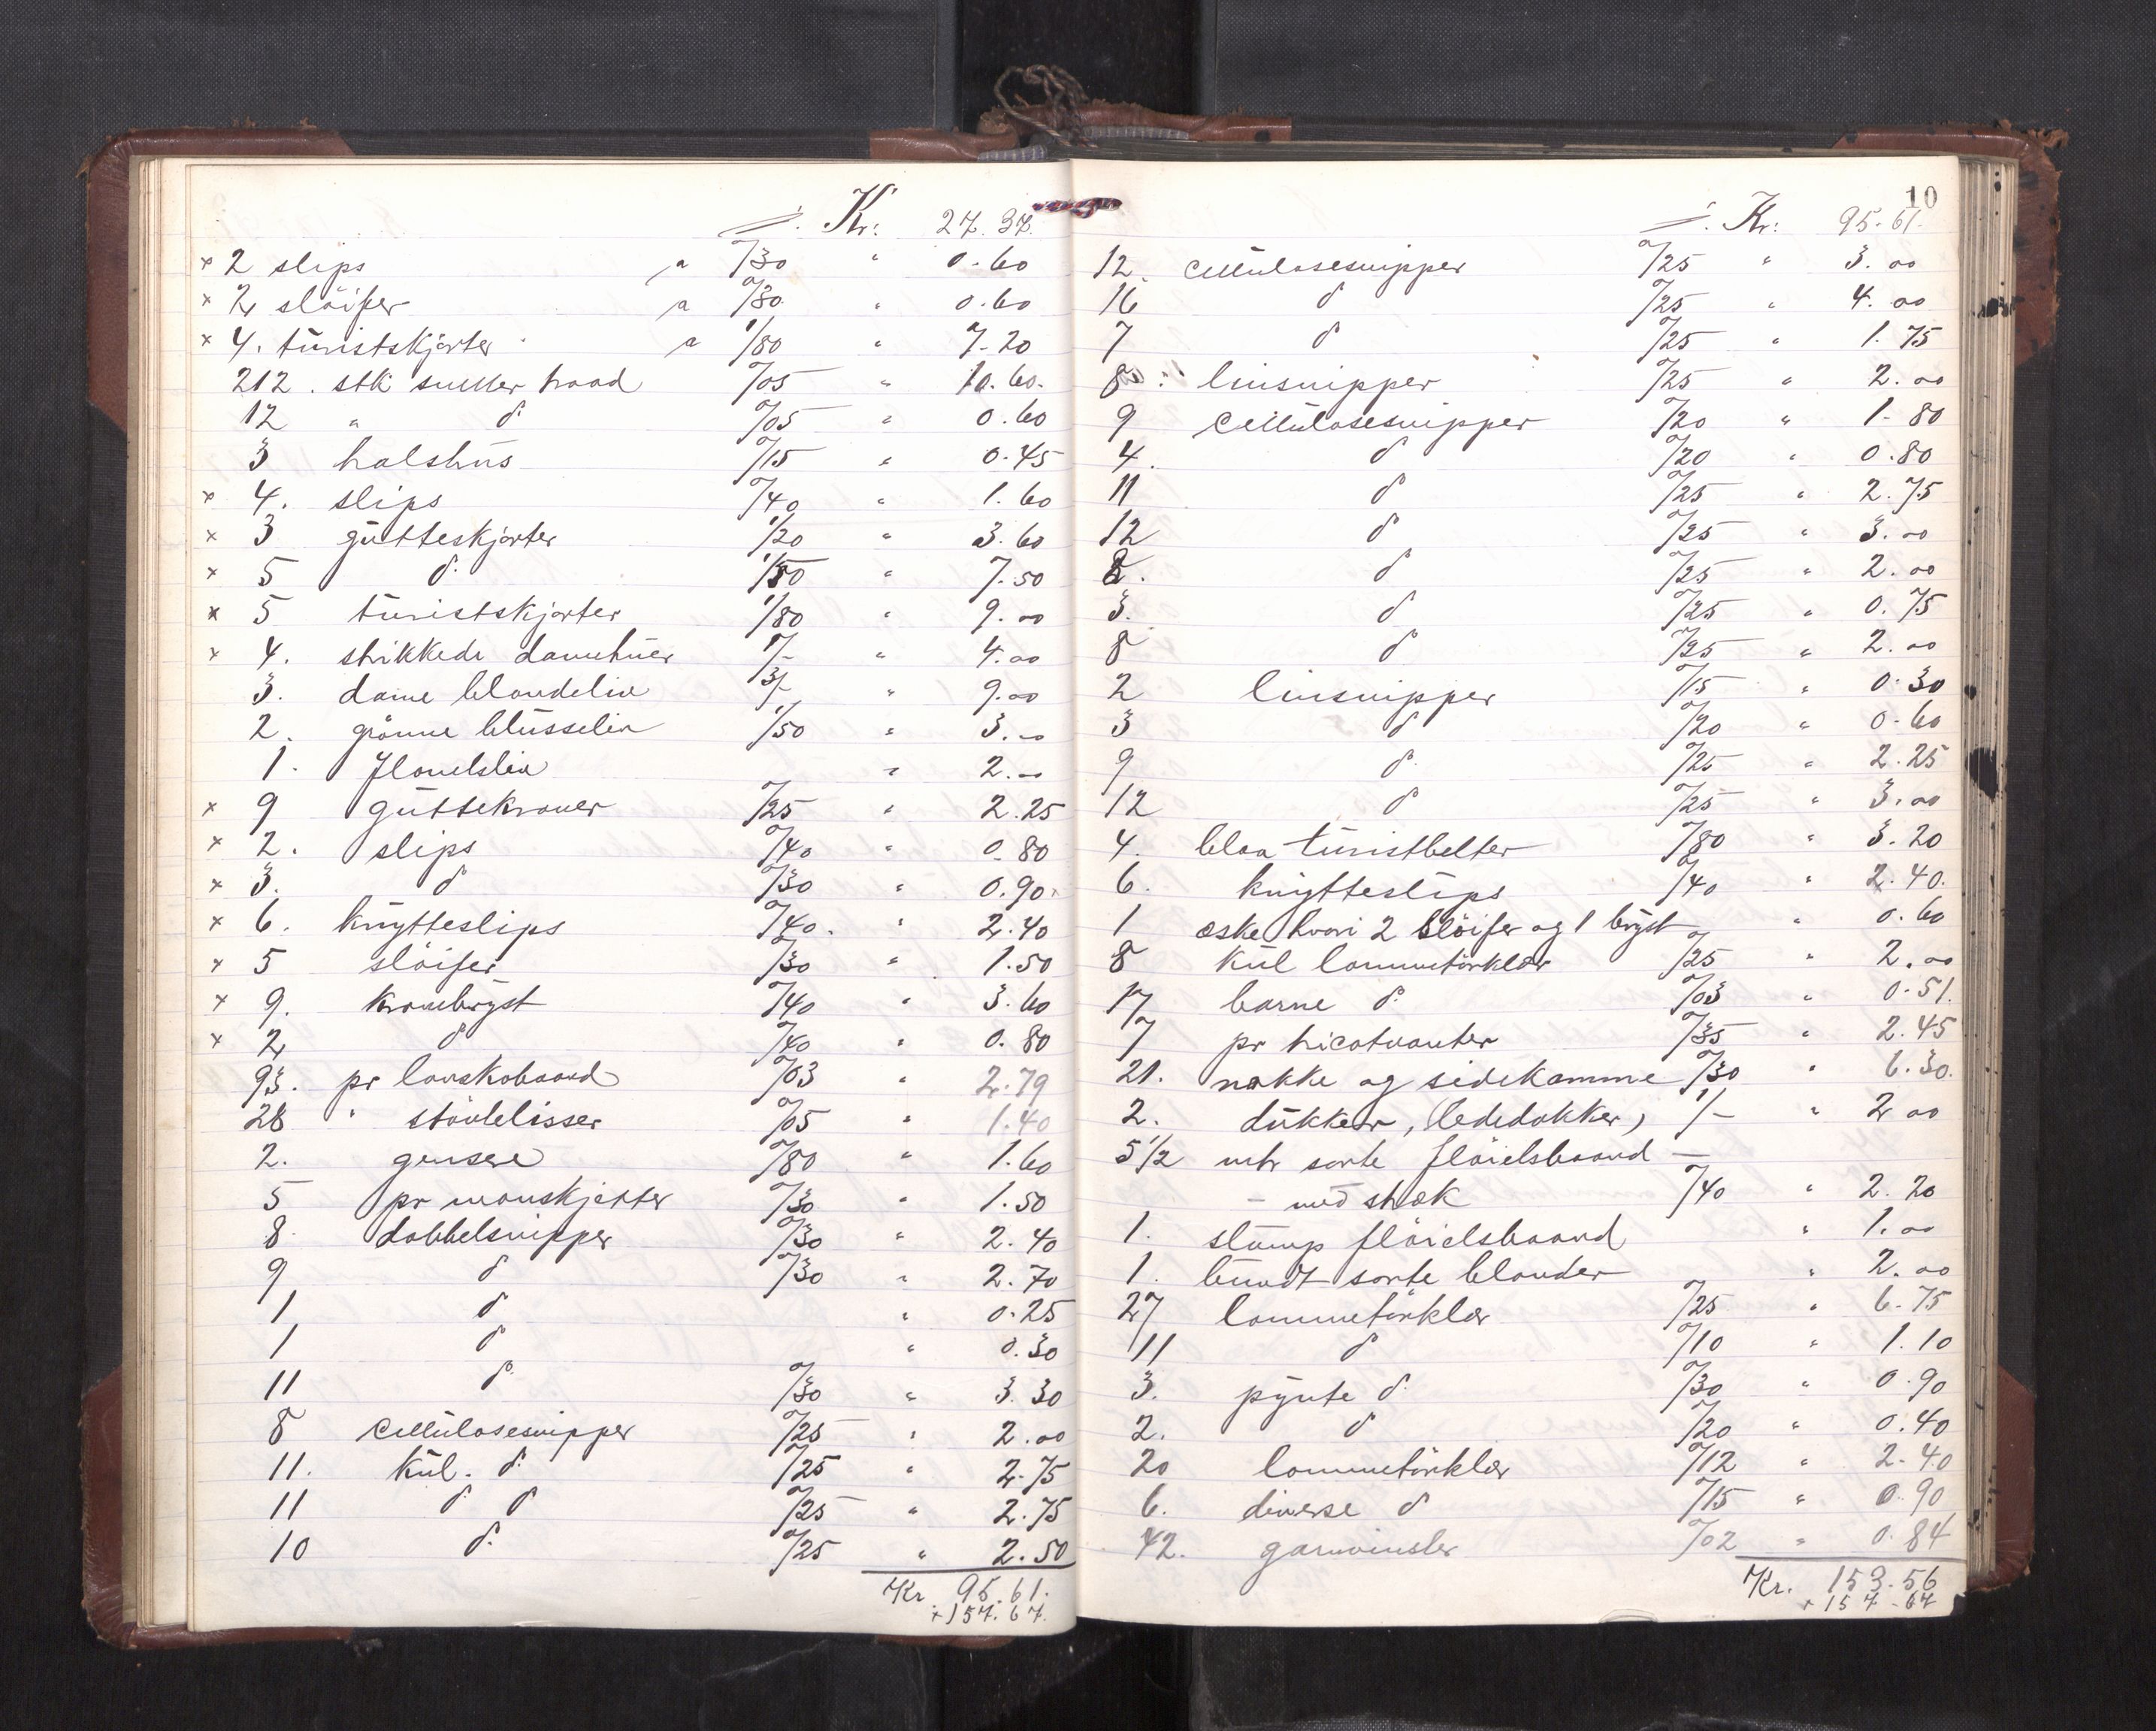 Kr: 27.37.
× 2 slips a 0/30 " 0.60
× 2 slöifer a 0/30 " 0.60
× 4. turistskjorter a 1/80 " 7.20
212. stk snelker traad 0/05 " 10.60.
12 " d° 0/05 " 0.60
3 halshus 0/15 " 0.45
× 4. slips 0/40 " 1.60
× 3 gutteskjorter 1/20 " 3.60
× 5 d° 1/50 " 7.50
× 5 turistskjorter 1/80 " 9.00
× 4. strikkede damehuer 1/- " 4.00
3. dame blondeliv 3/- " 9.00
2. grönne bluseliv 1/50 " 3.00
1. flonelsliv " 2.00
× 9 guttekraver 0/25 " 2.25
× 2. slips 0/40 " 0.80
× 3. d° 0/30 " 0.90
× 6. knytteslips 0/40. " 2.40
× 5 slöifer 0/30 " 1.50
× 9. kravebryst 0/40 " 3.60
× 2 d° 0/40 " 0.80
93. pr lavskobaand 0/03 " 2.79
28 " stövlelisser 0/05 " 1.40
2. gensere 0/80 " 1.60
5 pr manskjetter 0/30 " 1.50
8. dobbelsnipper 0/30 " 2.40
9 d° 0/30 " 2.70
1 d° " 0.25
1 d° " 0.30
11 d° 0/30 " 3.30
8 cellulosesnipper 0/25 " 2.00
11. kul. d° 0/25 " 2.75
11 d° d° 0/25 " 2.75
10 d° 0/25 " 2.50
Kr. 95.61.
+ 157.67.
10
Kr: 95.61.
12. cellulosesnipper 0/25 " 3.00
16 d° 0/25 " 4.00
7 d° 0/25 " 1.75
8 linsnipper 0/25 " 2.00
9 cellulosesnipper 0/20 " 1.80
4. d° 0/20 " 0.80
11 d° 0/25 " 2.75
12 d° 0/25 " 3.00
8. d° 0/25 " 2.00
3. d° 0/25 " 0.75
8 d° 0/25 " 2.00
2 linsnipper 0/15 " 0.30
3 d° 0/20 " 0.60
9 d° 0/25 " 2.25
12 d° 0/25 " 3.00
4. blaa turistbelter 0/80 " 3.20
6. knytteslips 0/40 " 2.40.
1 æske hvori 2 slöifer og 1 bryst " 0.60
8 kul lommetörklær 0/25 " 2.00
17 barne d° 0/03 " 0.51.
7 pr tricotvanter 0/35 " 2.45
21. nakke og sidekamme 0/30 " 6.30.
2. dukker, (ledddokker) 1/- " 2.00
5 1/2 mtr sorte flöielsbaand —
— med stræk 0/40 " 2.20
1. stump flöielsbaand " 1.00
1. bundt sorte blonder " 2.00
27 lommetörklær 0/25 " 6.75
11 d° 0/10 " 1.10
3. pynte d° 0/30 " 0.90
2. d° 0/20 " 0.40
20 lommetörklær 0/12 " 2.40
6. diverse d° 0/15 " 0.90
42. garnvinsler 0/02 " 0.84
Kr. 153.56
+ 157.67